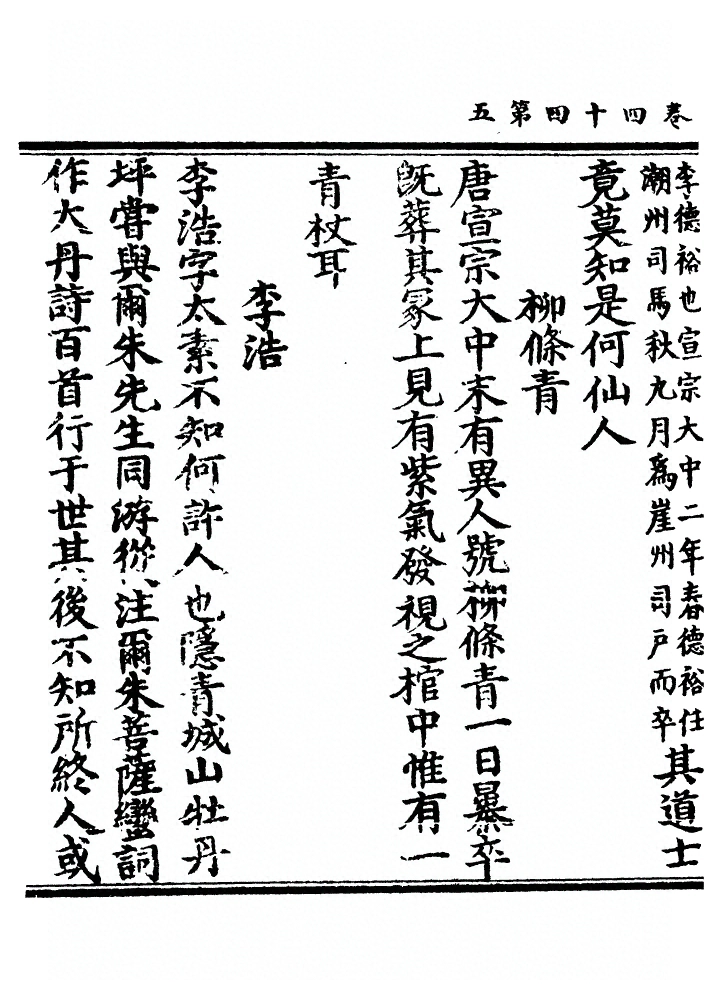 卷四十四第五
李德裕也宣宗大中二年春德裕任
潮州司馬秋九月爲崖州司戶而卒
其道士
竟莫知是何仙人
柳條青
唐宣宗大中末有異人號柳條青一日暴卒
旣葬其冢上見有紫氣發視之棺中惟有一
青杖耳
李浩
李浩字太素不知何許人也隱青城山牡丹
坪嘗與爾朱先生同游從注爾朱菩薩蠻詞
作大丹詩百首行于世其後不知所終人或